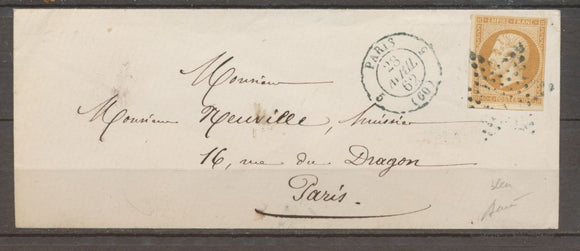 EMPIRE FRANC.
PARIS
5 (60)
Monsieur
Monsieur Neuville, huissier
16, rue du Dragon
Paris.